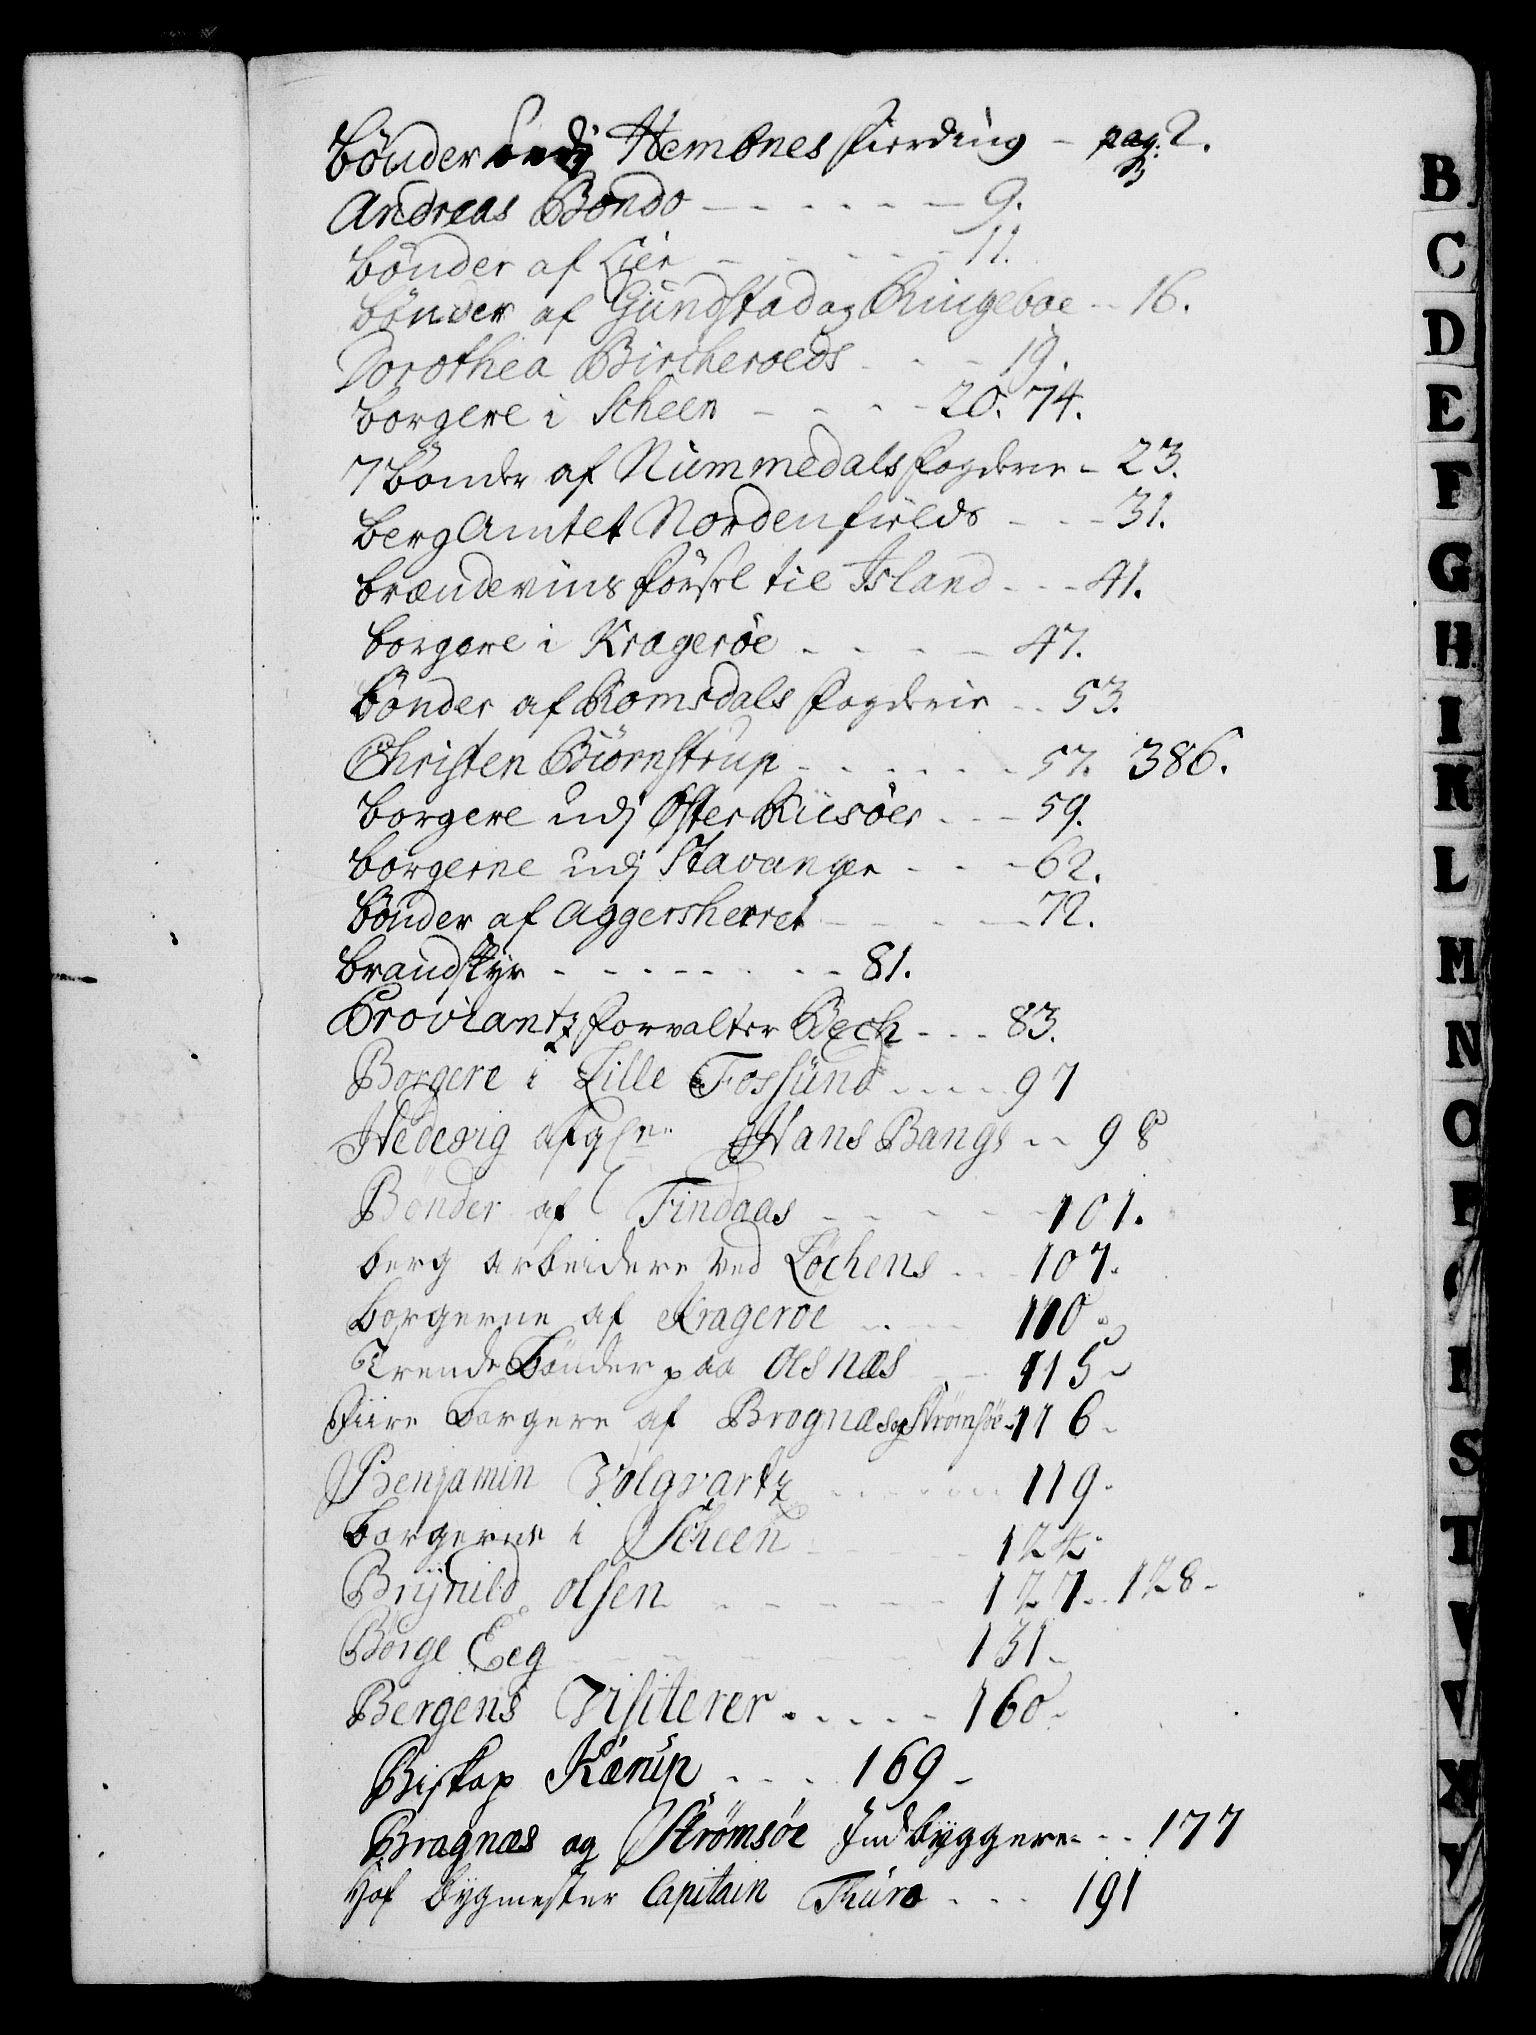 Bönder udj Hemsnes Fierding - pag: 2.
Andreas Bondo - - - - - - 9.
Bönder af Lier - - - - - - 11.
Bönder af Gundstad og Ringeboe - - 16.
Dorothea Bircheroeds - - - 19.
Borgere i Scheen - - - - 20. 74.
7 Bönder af Nummedals Fogderie - 23.
Berg Amtet Nordenfields - - - 31.
Brændeviins Försel til Island - - - 41.
Borgere i Kragerøe - - - - - 47.
Bönder af Romsdals Fogderie - - 53.
Christen Biørnstrup - - - - - - 57. 386.
Borgere udj Øster Riisöer - - - 59.
Borgerne udj Stavanger - - - 62.
Bönder af Aggersherret - - - - - 72.
Brandstyr - - - - - - - - 81.
Proviantz Forvalter Bech - - - 83.
Borgere i Lille Fossund - - - - 97
Hedevig afgln Hans Bangs - - 98
Bönder af Findaas - - - - - 101.
Berg Arbeidere ved Løchens - - - 107.
Borgerne af Kragerøe - - - 110.
Trende Bönder paa Olsnæs - - 115
Fiire Borgere af Bragnæs og Strømsøe - 116.
Benjamin Volqvartz - - - - - - 119.
Borgerne i Scheen - - - - 124.
Brynild Olsen - - - - - - 127. 128.
Børge Eeg - - - - - - - 131.
Bergens Visiterer - - - - - 160.
Biskop Kærup - - - 169.
Bragnæs og Strømsøe Indbyggere - - - 177
Hof Bygmester Capitain Thura - - - 191
B
C
D
E
F
G
H
I
K
L
M
N
O
P
S
T
V
X
Y